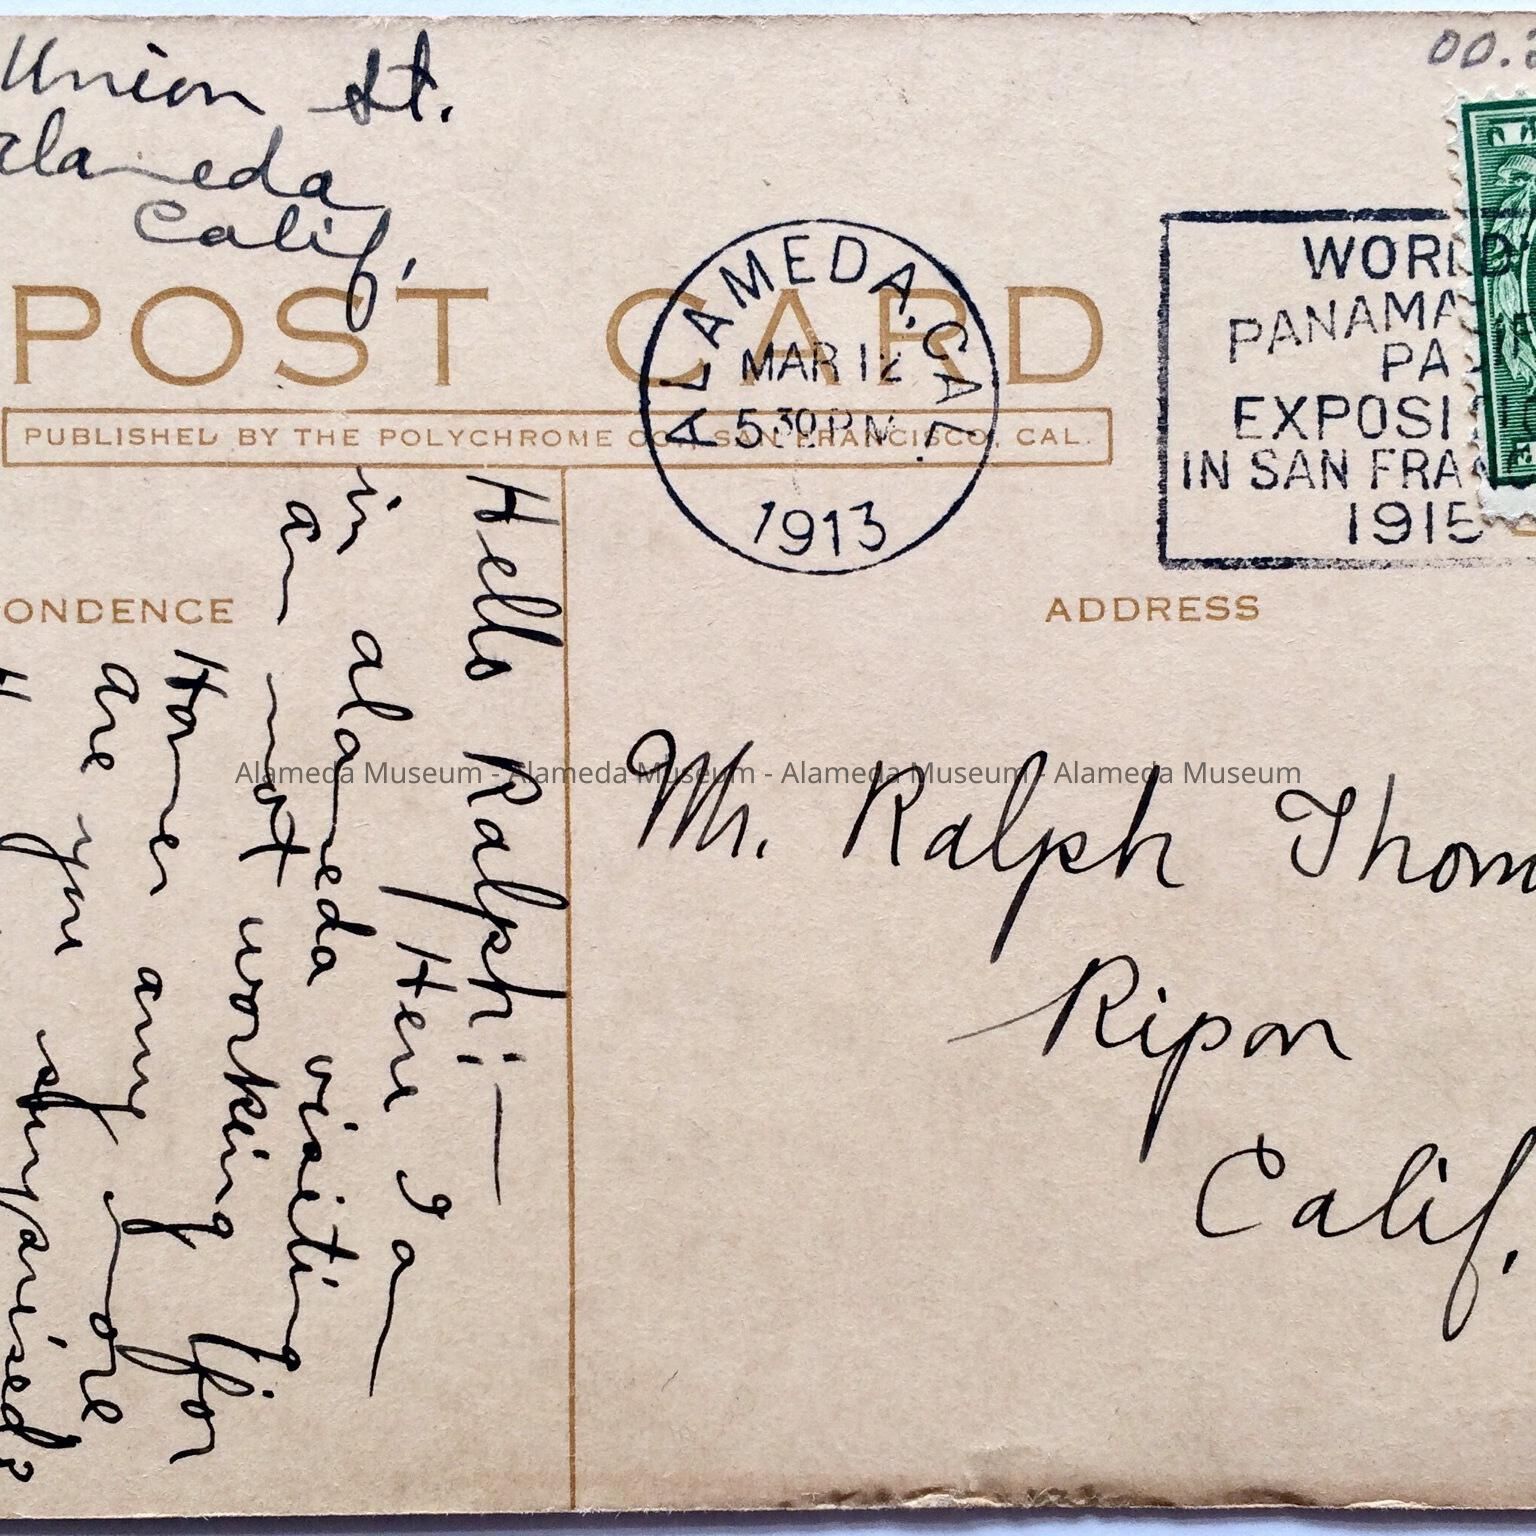 Union St.
Alameda
Calif.
00.2
POST CARD
PUBLISHED BY THE POLYCHROME CO., SAN FRANCISCO, CAL.
ALAMEDA, CA
MAR 12
5 30 P.M.
1913
WORLD'
PANAMA
PA
EXPOSI
IN SAN FRA
1915
ONDENCE
ADDRESS
Hello Ralph:—
Here I am
in alameda visiting
am not working for
Homer any more
are you surprised?
H
Mr. Ralph Thom
Ripon
Calif.
Alameda Museum - Alameda Museum - Alameda Museum - Alameda Museum